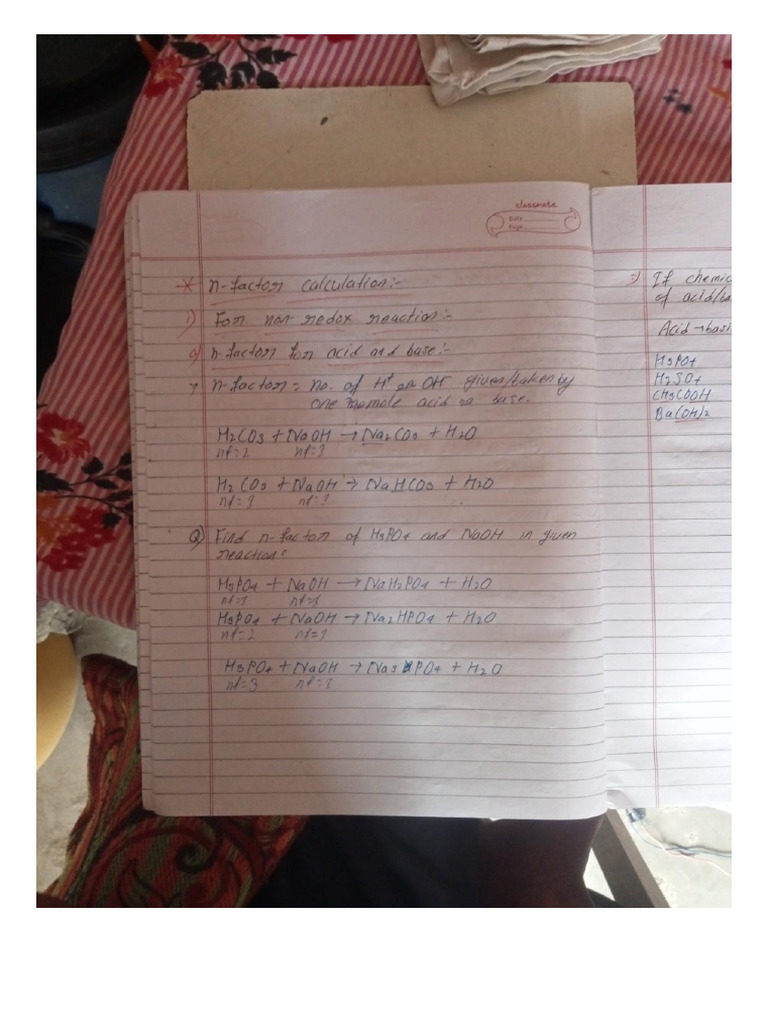 classmate
Date
Page
* n-factor calculation:-
i) For non-redox reaction:-
a) n-factor for acid and base:-
→ n-factor = no. of H+ or OH- given/taken by
one mole acid or base.
H2CO3 + NaOH → Na2CO3 + H2O
nf=2 nf=1
H2CO3 + NaOH → NaHCO3 + H2O
nf=1 nf=1
Q) Find n-factor of H3PO4 and NaOH in given
reaction:
H3PO4 + NaOH → NaH2PO4 + H2O
nf=1 nf=1
H3PO4 + NaOH → Na2HPO4 + H2O
nf=2 nf=1
H3PO4 + NaOH → Na3PO4 + H2O
nf=3 nf=1
If chemic
of acid/ba
Acid → basi
H3PO4
H2SO4
CH3COOH
Ba(OH)2